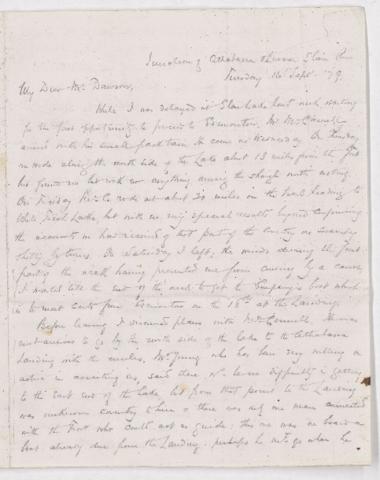 Junction of Athabasca & Lesser Slave River
Tuesday 16 Sept. '79.
My Dear Mr. Dawson,
While I was delayed at Slave Lake last week waiting
for the first opportunity to proceed to Edmonton, Mr. McConnell
arrived with his small pack train. He came on Wednesday. On Thursday
we rode along the north side of the Lake about 13 miles from the Fort
but found no bed rock or anything among the shingle worth noting.
On Friday we rode out about 20 miles on the track leading to
White Lake, but with no very special results beyond confirming
the accounts we had received of that part of the country as
by turns. On Saturday I left, the winds during the first
part of the week having prevented me from coming by a canoe,
I waited till the end of the week to get the Company's boat which
is to meet carts from Edmonton on the 18th at the Landing.
Before leaving I discussed plans with McConnell. He was
most anxious to go by the north side of the lake to the Athabasca
Landing with the mules. Mr. Young who has been very willing &
active in assisting us, said there was no difficulty in getting
to the East end of the Lake, but from that point to the Landing
was unknown country to him & there was not one man connected
with the Fort who could act as guide: there was one on board a
boat already due from the Landing. perhaps he to go when he